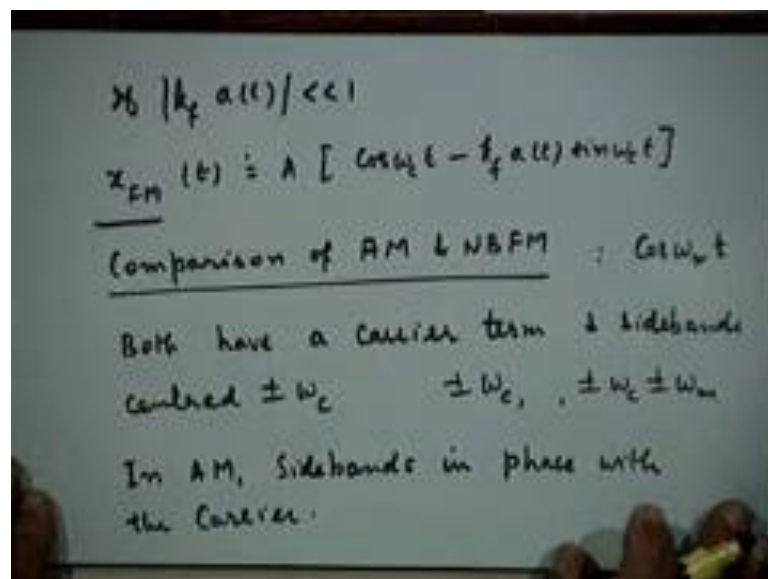 If |k_f a(t)| << 1
x_FM (t) ≐ A [ cos ω_c t - k_f a(t) sin ω_c t ]
Comparison of AM & NBFM : Cos ω_m t
Both have a Carrier term & sidebands
centred ± ω_c ± ω_c, , ± ω_c ± ω_m
In AM, Sidebands in phase with
the Carrier.